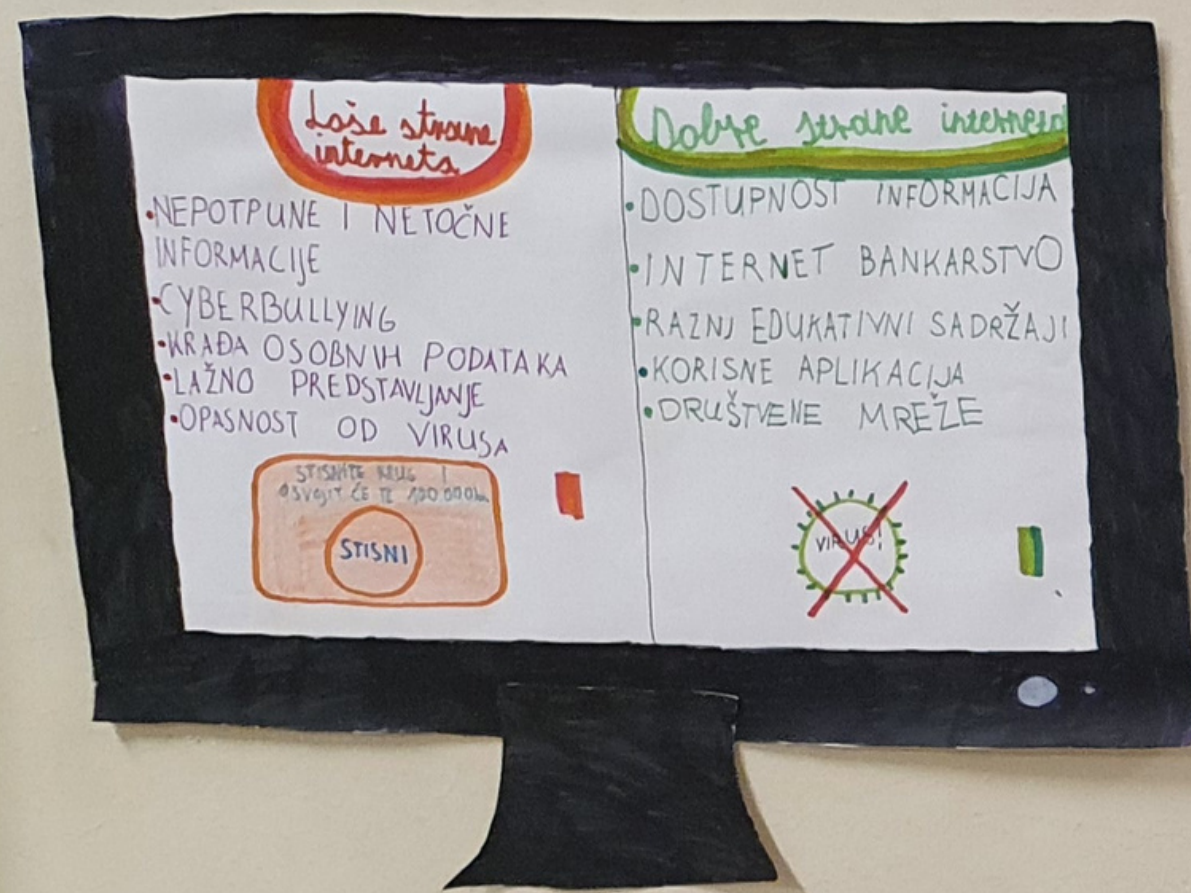 Loše strane
interneta
•NEPOTPUNE I NETOČNE
INFORMACIJE
•CYBERBULLYING
•KRAĐA OSOBNIH PODATAKA
•LAŽNO PREDSTAVLJANJE
•OPASNOST OD VIRUSA
STISNITE KRUG I
OSVOJIT ĆE TE 100.000kn
STISNI
Dobre strane interneta
•DOSTUPNOST INFORMACIJA
•INTERNET BANKARSTVO
•RAZNI EDUKATIVNI SADRŽAJI
•KORISNE APLIKACIJA
•DRUŠTVENE MREŽE
VIRUS!